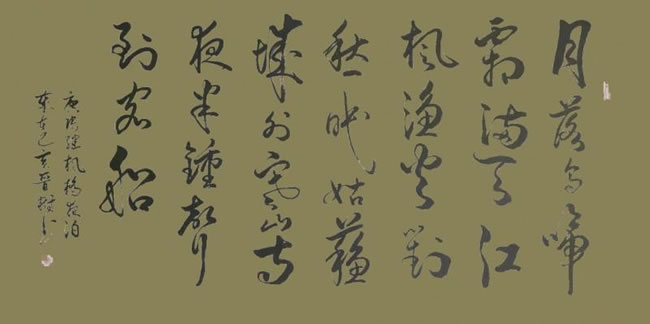 月落烏啼
霜滿天江
楓漁火對
愁眠姑蘇
城外寒山寺
夜半鐘聲
到客船
唐張繼楓橋夜泊
己亥